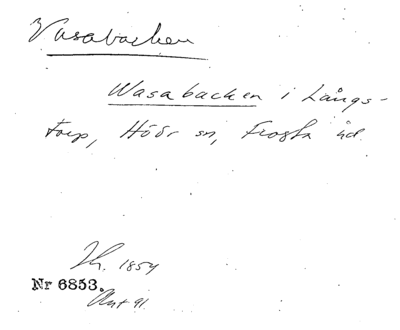 Vasabacken
Wasabacken i Långs-
torp, Höör sn, Frosta hd.
Th. 1854
Nr 6853.
Ant 91